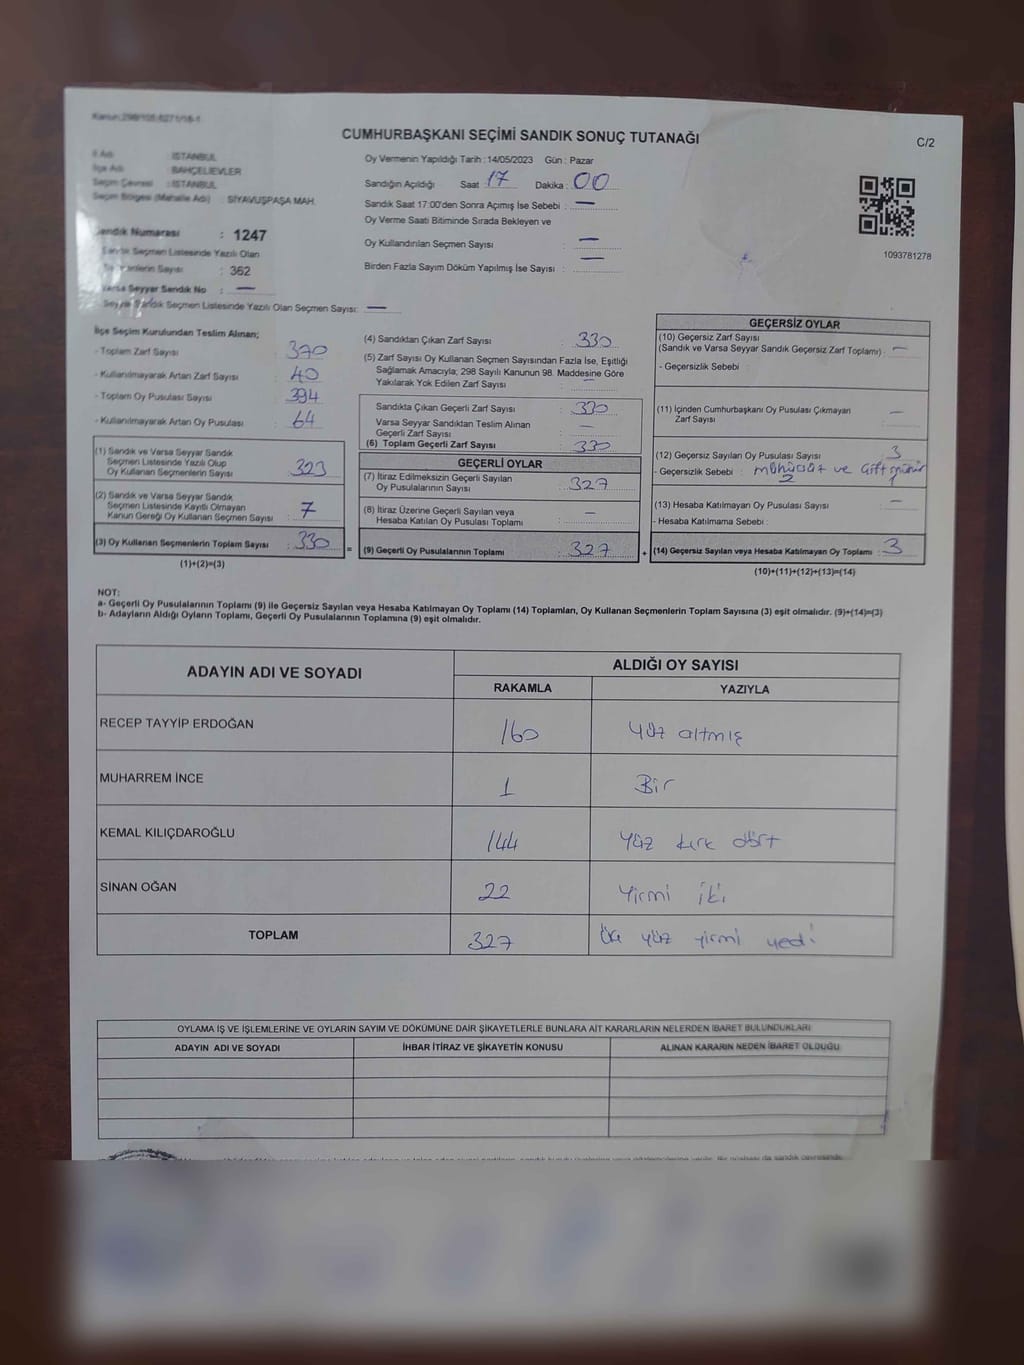 Kanun:298/105;6271/18-1
CUMHURBAŞKANI SEÇİMİ SANDIK SONUÇ TUTANAĞI
C/2
İl Adı : İSTANBUL
İlçe Adı : BAHÇELİEVLER
Seçim Çevresi : İSTANBUL
Seçim Bölgesi (Mahalle Adı) : SİYAVUŞPAŞA MAH.
Sandık Numarası : 1247
Sandık Seçmen Listesinde Yazılı Olan
Seçmenlerin Sayısı : 362
Varsa Seyyar Sandık No : —
Seyyar Sandık Seçmen Listesinde Yazılı Olan Seçmen Sayısı: —
Oy Vermenin Yapıldığı Tarih : 14/05/2023 Gün : Pazar
Sandığın Açıldığı Saat 17 Dakika : 00
Sandık Saat 17:00'den Sonra Açımış İse Sebebi : —
Oy Verme Saati Bitiminde Sırada Bekleyen ve
Oy Kullandırılan Seçmen Sayısı : —
Birden Fazla Sayım Döküm Yapılmış İse Sayısı : —
1093781278
İlçe Seçim Kurulundan Teslim Alınan;
- Toplam Zarf Sayısı : 370
- Kullanılmayarak Artan Zarf Sayısı : 40
- Toplam Oy Pusulası Sayısı : 394
- Kullanılmayarak Artan Oy Pusulası : 64
(1) Sandık ve Varsa Seyyar Sandık
Seçmen Listesinde Yazılı Olup
Oy Kullanan Seçmenlerin Sayısı : 323
(2) Sandık ve Varsa Seyyar Sandık
Seçmen Listesinde Kayıtlı Olmayan
Kanun Gereği Oy Kullanan Seçmen Sayısı : 7
(3) Oy Kullanan Seçmenlerin Toplam Sayısı : 330
(1)+(2)=(3)
=
(4) Sandıktan Çıkan Zarf Sayısı : 330
(5) Zarf Sayısı Oy Kullanan Seçmen Sayısından Fazla İse, Eşitliği
Sağlamak Amacıyla; 298 Sayılı Kanunun 98. Maddesine Göre
Yakılarak Yok Edilen Zarf Sayısı : —
Sandıkta Çıkan Geçerli Zarf Sayısı : 330
Varsa Seyyar Sandıktan Teslim Alınan
Geçerli Zarf Sayısı : —
(6) Toplam Geçerli Zarf Sayısı : 330
GEÇERLİ OYLAR
(7) İtiraz Edilmeksizin Geçerli Sayılan
Oy Pusulalarının Sayısı : 327
(8) İtiraz Üzerine Geçerli Sayılan veya
Hesaba Katılan Oy Pusulası Toplamı : —
(9) Geçerli Oy Pusulalarının Toplamı : 327
+
GEÇERSİZ OYLAR
(10) Geçersiz Zarf Sayısı
(Sandık ve Varsa Seyyar Sandık Geçersiz Zarf Toplamı) : —
- Geçersizlik Sebebi :
(11) İçinden Cumhurbaşkanı Oy Pusulası Çıkmayan
Zarf Sayısı : —
(12) Geçersiz Sayılan Oy Pusulası Sayısı : 3
- Geçersizlik Sebebi : mühürsüz ve çift mühür
2 1
(13) Hesaba Katılmayan Oy Pusulası Sayısı : —
- Hesaba Katılmama Sebebi :
(14) Geçersiz Sayılan veya Hesaba Katılmayan Oy Toplamı : 3
(10)+(11)+(12)+(13)=(14)
NOT:
a- Geçerli Oy Pusulalarının Toplamı (9) ile Geçersiz Sayılan veya Hesaba Katılmayan Oy Toplamı (14) Toplamları, Oy Kullanan Seçmenlerin Toplam Sayısına (3) eşit olmalıdır. (9)+(14)=(3)
b- Adayların Aldığı Oyların Toplamı, Geçerli Oy Pusulalarının Toplamına (9) eşit olmalıdır.
ADAYIN ADI VE SOYADI
ALDIĞI OY SAYISI
RAKAMLA YAZIYLA
RECEP TAYYİP ERDOĞAN 160 Yüz altmış
MUHARREM İNCE 1 Bir
KEMAL KILIÇDAROĞLU 144 Yüz kırk dört
SİNAN OĞAN 22 Yirmi iki
TOPLAM 327 Üç yüz yirmi yedi
OYLAMA İŞ VE İŞLEMLERİNE VE OYLARIN SAYIM VE DÖKÜMÜNE DAİR ŞİKAYETLERLE BUNLARA AİT KARARLARIN NELERDEN İBARET BULUNDUKLARI
ADAYIN ADI VE SOYADI İHBAR İTİRAZ VE ŞİKAYETİN KONUSU ALINAN KARARIN NEDEN İBARET OLDUĞU